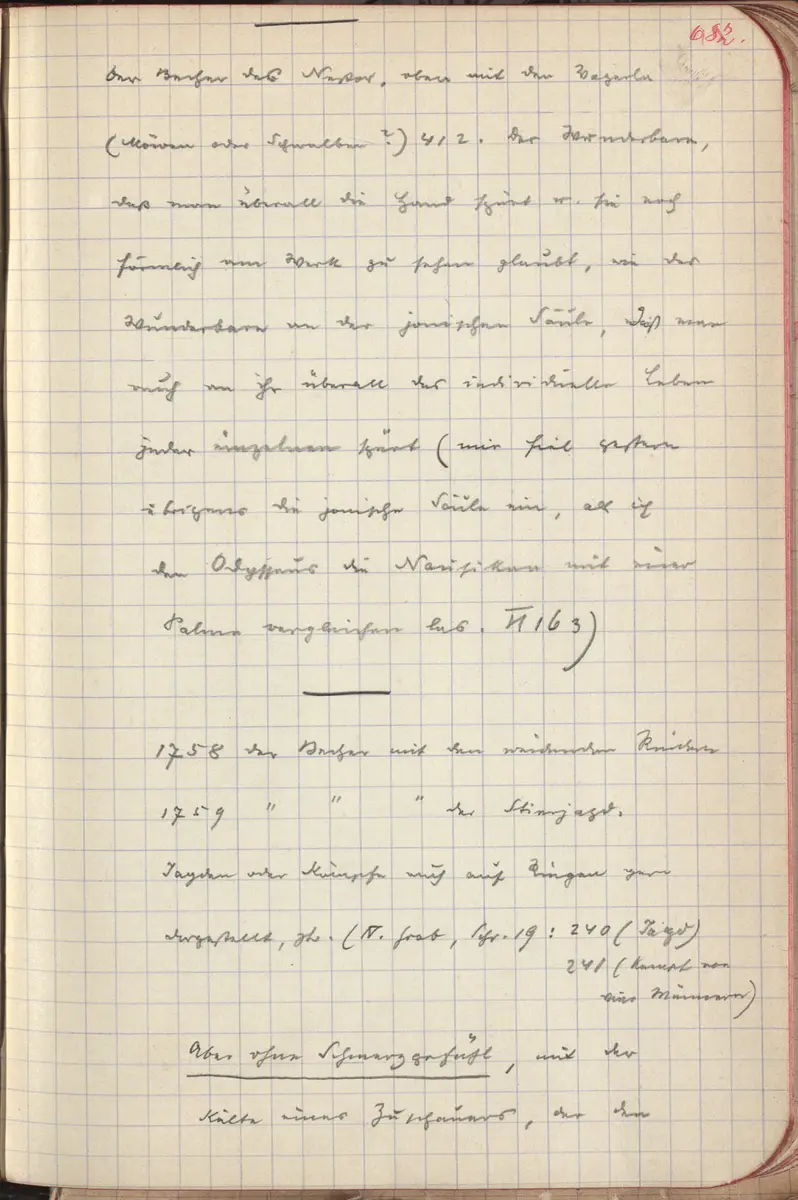 682.
Der Becher des Nestor, oben mit den Vogerln
(Möwen oder Schwalben?) 412. Das Wunderbare,
daß man überall die Hand spürt u. sie noch
förmlich am Werk zu sehen glaubt, wie das
Wunderbare an der jonischen Säule, daß man
auch an ihr überall das individuelle Leben
jeder einzelnen spürt (mir fiel gestern
übrigens die jonische Säule ein, als ich
den Odysseus die Nausikaa mit einer
Palme vergleichen las. VI 163)
1758 der Becher mit den weidenden Rindern
1759 " " " der Stierjagd.
Jagden oder Kämpfe auch auf Ringen gern
dargestellt, zb. (IV. Grab, Schr. 19: 240 (Jagd)
241 (Kampf von
vier Männern)
Aber ohne Schmerzgefühl, mit der
Kälte eines Zuschauers, der den